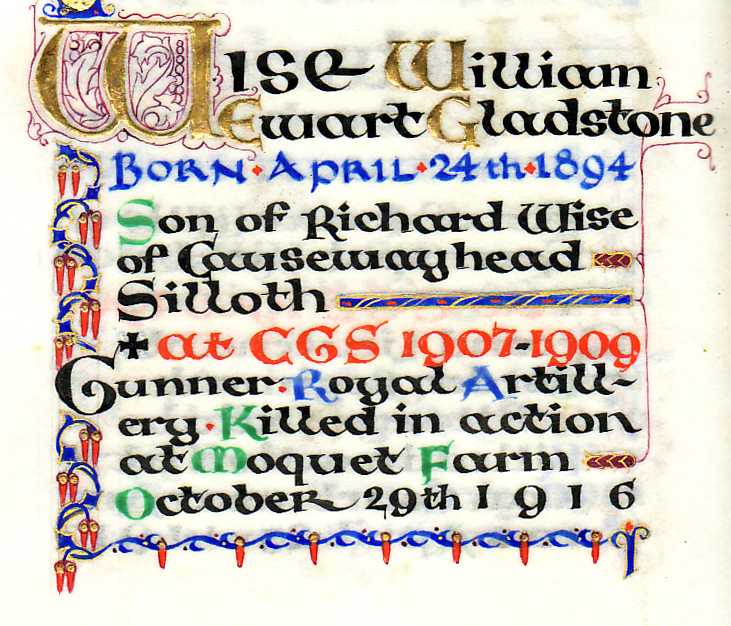 Wise William
Ewart Gladstone
Born · April · 24th · 1894
Son of Richard Wise
of Causewayhead
Silloth
✠ at CGS 1907-1909
Gunner · Royal Artill-
ery · Killed in action
at Moquet Farm
October 29th 1916